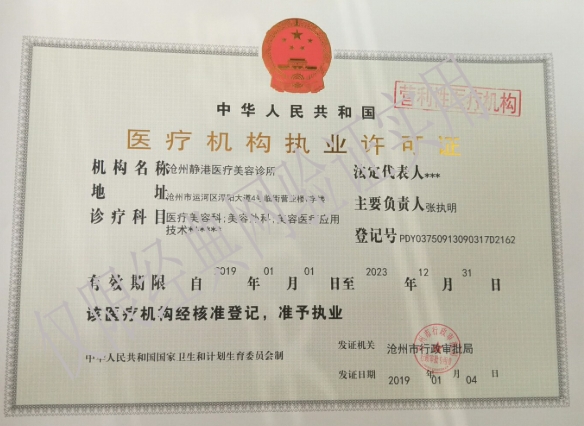 营利性医疗机构
中华人民共和国
医疗机构执业许可证
机构名称 沧州静港医疗美容诊所
法定代表人 ***
地址 沧州市运河区 大道4号临街营业楼
主要负责人 张执明
诊疗科目 医疗美容科;美容外科;美容医疗应用
技术******
登记号 PDY03750913090317D2162
有效期限 自 2019 年 01 月 01 日至 2023 年 12 月 31 日
该医疗机构经核准登记，准予执业
发证机关 沧州市行政审批局
中华人民共和国国家卫生和计划生育委员会制
发证日期 2019 年 01 月 04 日